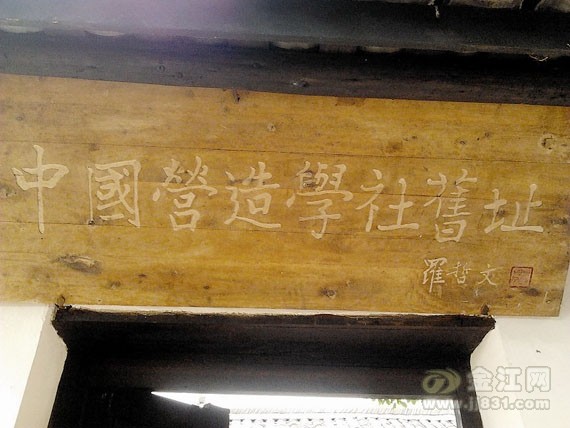 中國營造學社舊址
羅哲文
金江网
www.jj831.com